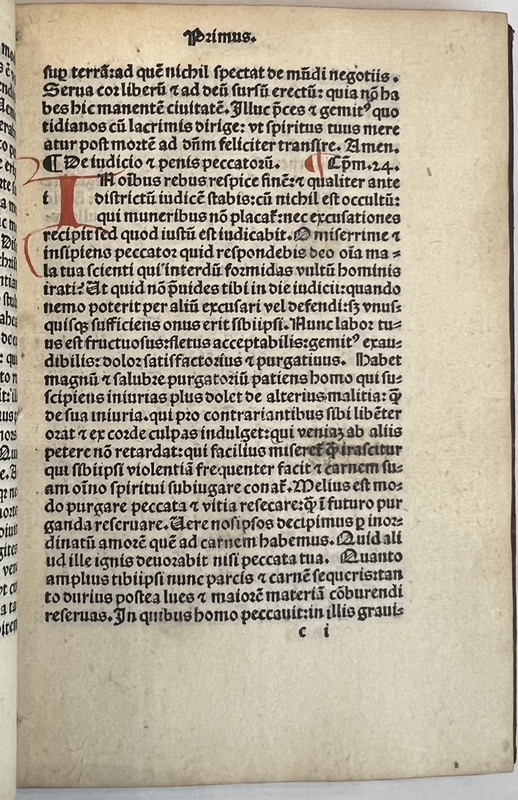 Primus.
sup terrā:ad quē nichil spectat de mūdi negotiis.
Serua cor liberū ⁊ ad deū sursū erectū: quia nō ha
bes hic manentē ciuitatē. Illuc p̄ces ⁊ gemitꝰ quo
tidianos cū lacrimis dirige: vt spiritus tuus mere
atur post mortē ad dn̄m feliciter transire. Amen.
¶ De iudicio ⁊ penis peccatorū. ¶ Cp̄m. 24.
IN oībus rebus respice finē: ⁊ qualiter ante
i districtū iudicē stabis: cū nichil est occultū:
qui muneribus nō placat̄: nec excusationes
recipit sed quod iustū est iudicabit. O miserrime ⁊
insipiens peccator quid respondebis deo oīa ma⸗
la tua scienti qui interdū formidas vultū hominis
irati? At quid nō p̄uides tibi in die iudicii: quando
nemo poterit per aliū excusari vel defendi: sꝫ vnus⸗
quisqꝫ sufficiens onus erit s̄biipsi. Nunc labor tu⸗
us est fructuosus: fletus acceptabilis: gemitꝰ exau⸗
dibilis: dolor satisfactorius ⁊ purgatiuus. Habet
magnū ⁊ salubre purgatoriū patiens homo qui su⸗
scipiens iniurias plus dolet de alterius malitia: q̄ꝫ
de sua iniuria. qui pro contrariantibus sibi libēter
orat ⁊ ex corde culpas indulget: qui veniaꝫ ab aliis
petere nō retardat: qui facilius miseret̄ q̄ꝫ irascitur
qui sibiipsi violentiā frequenter facit ⁊ carnem su⸗
am oīno spiritui subiugare conat̄. Melius est mo⸗
do purgare peccata ⁊ vitia resecare: q̄ꝫ ī futuro pur
ganda reseruare. Uere nosipsos decipimus ꝑ inor⸗
dinatū amorē quē ad carnem habemus. Quid ali
ud ille ignis deuorabit nisi peccata tua. Quanto
amplius tibiipsi nunc parcis ⁊ carnē sequeris: tan
to durius postea lues ⁊ maiorē materiā cōburendi
reseruas. In quibus homo peccauit: in illis graui⸗
c i